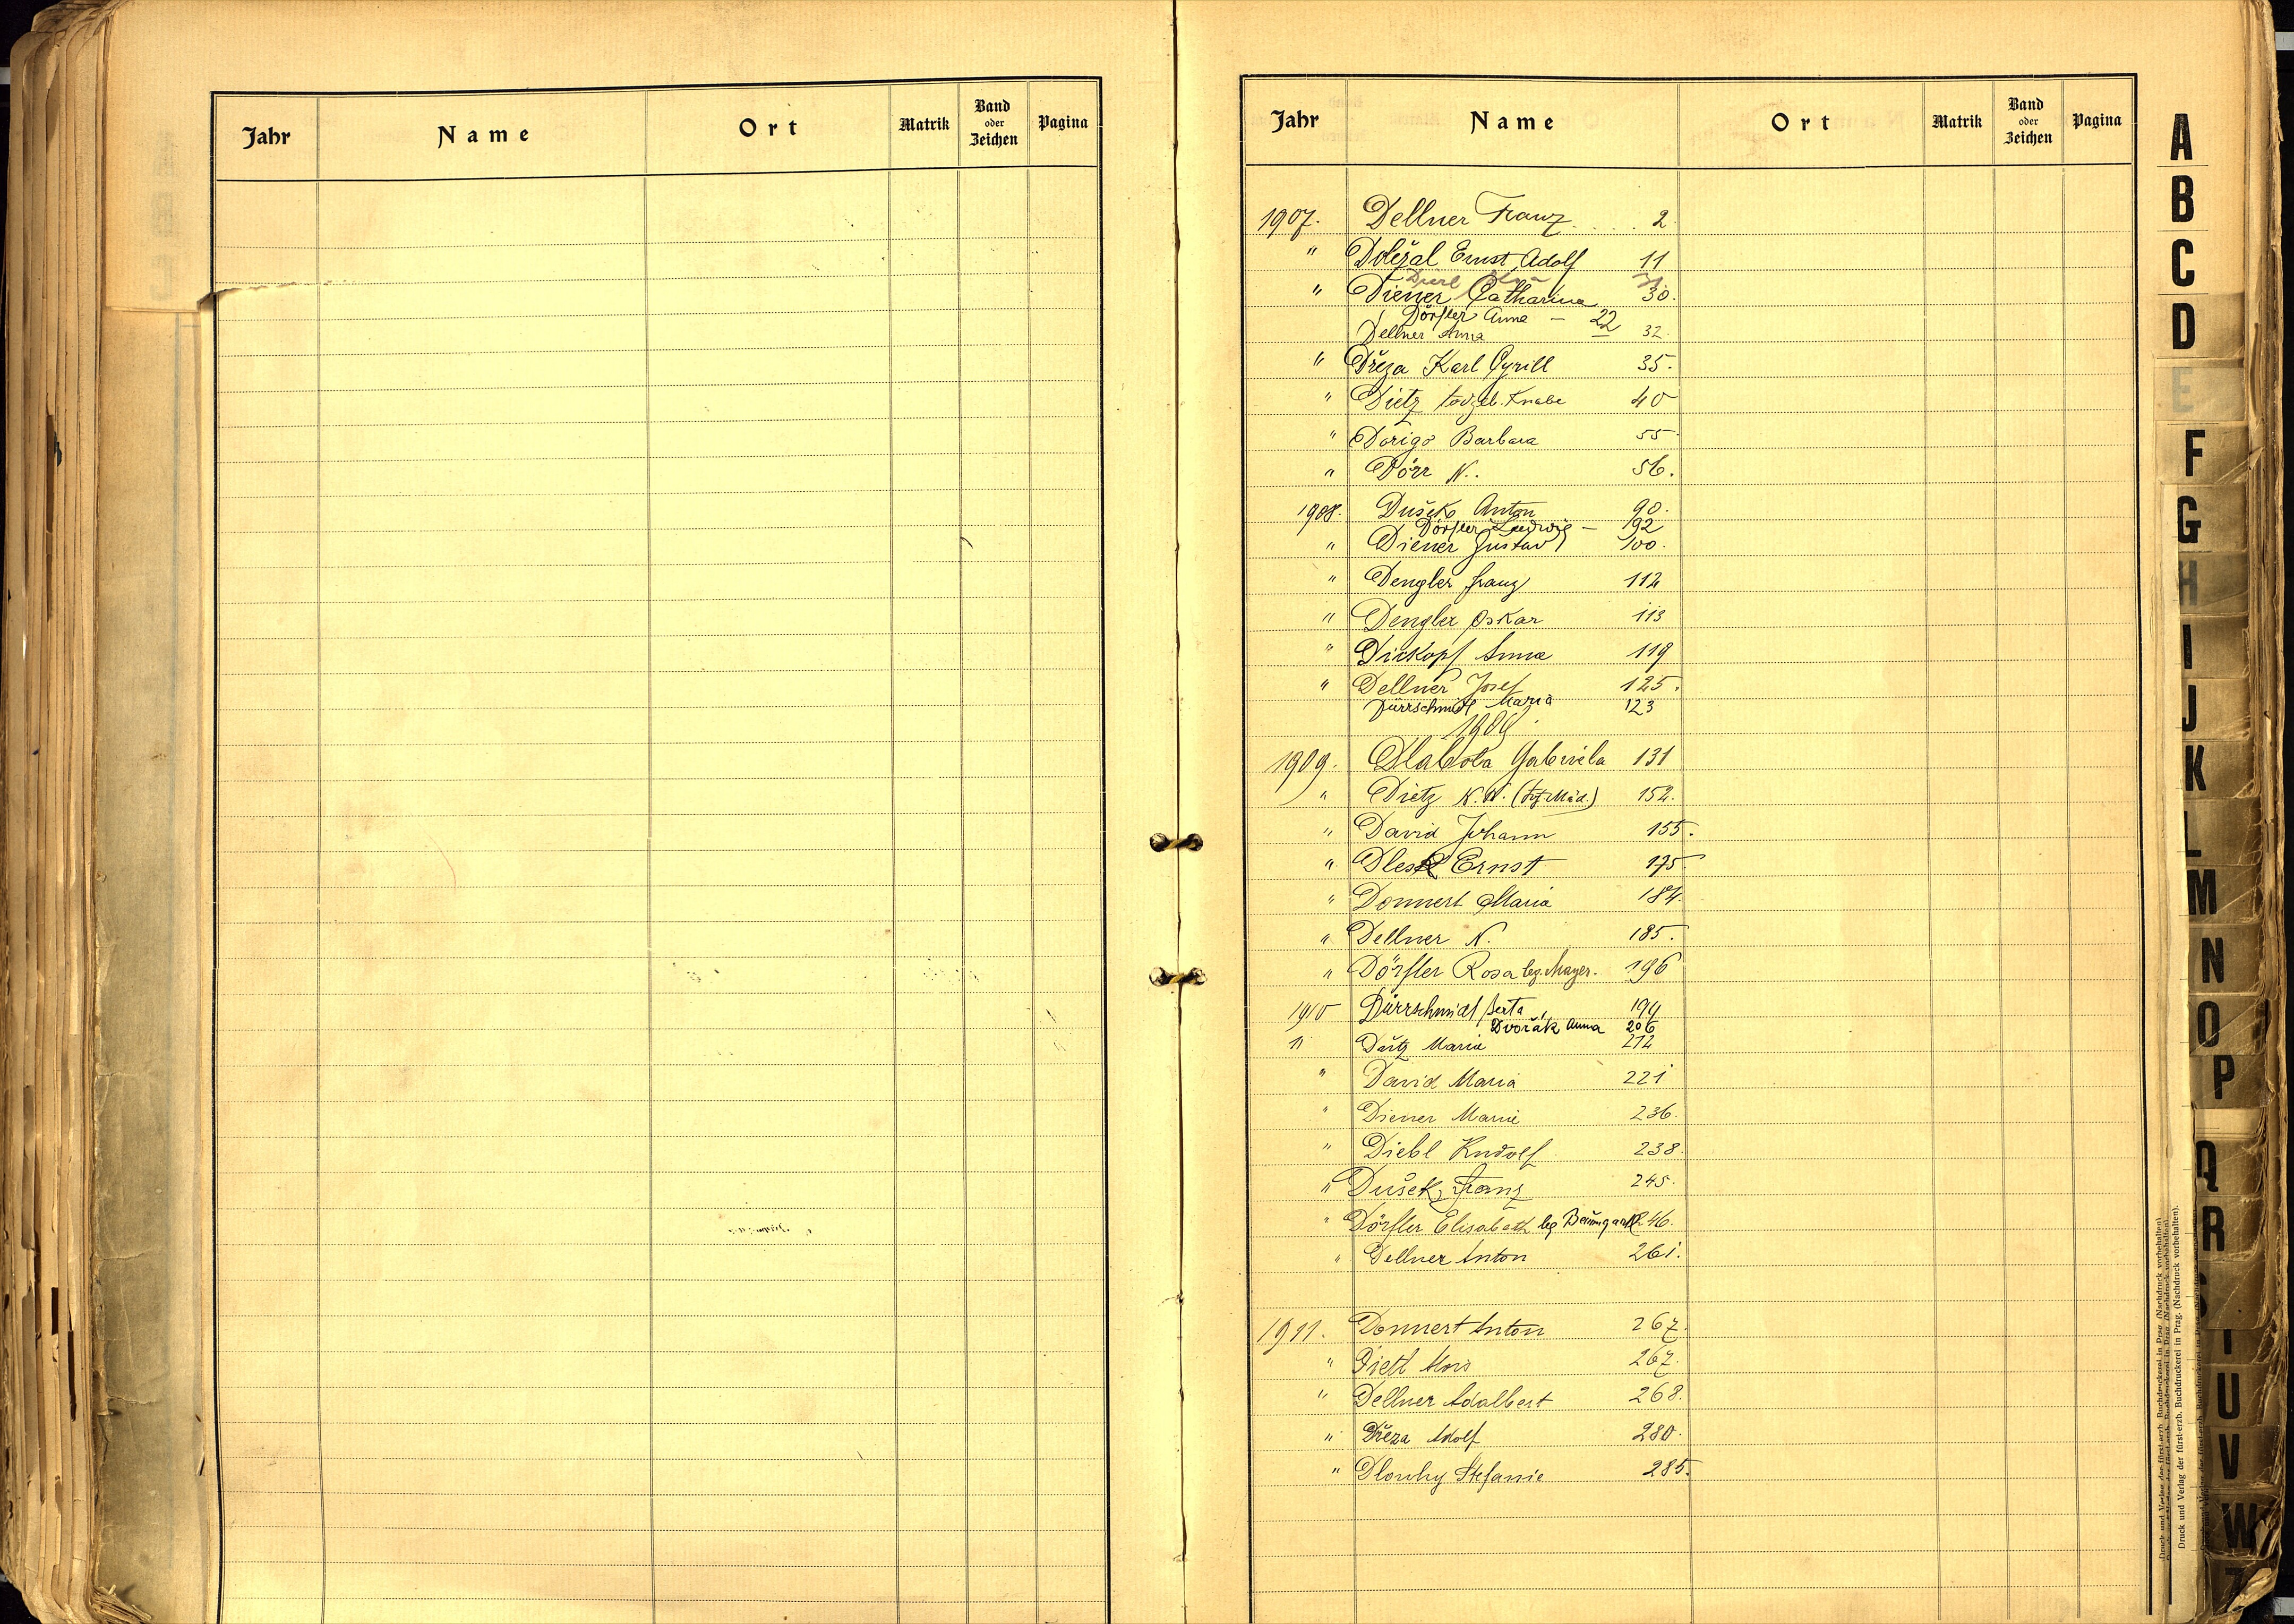 Jahr Name Ort Matrik Band oder Zeichen Pagina
Jahr Name Ort Matrik Band oder Zeichen Pagina
1907. Dellner Franz 2
" Doležal Ernst Adolf 11
Dierl 31
" Diener Catharina 30.
Dörfler Anna — 22
Dellner Anna 32.
" Dřeza Karl Cyrill 35.
" Dietz todgeb. Knabe 40
" Dorigo Barbara 55
" Dörr N. 56.
1908. Dušek Anton 90.
Dörfler Ludwig — 192
" Diener Gustav 100.
" Dengler Franz 112
" Dengler Oskar 113
" Dickopf Anna 119
" Dellner Josef 125.
Dürrschmidt Maria 123
1909.
1909. Dlabola Gabriela 131
" Dietz N. N. 152.
" David Johann 155.
" Dlesk Ernst 175
" Donnert Maria 184.
" Dellner N. 185.
" Dörfler Rosa leg. Mayer. 196
1910 Dürrschmidt Berta 194
Dvořák Anna 206
" Maria 212
" David Maria 221
" Diener Marie 236.
" Diebl Rudolf 238.
" Dušek Franz 245.
" Dörfler Elisabeth leg Baumgartl 246.
" Dellner Anton 261.
1911. Donnert Anton 267.
" Dietl Alois 267.
" Dellner Adalbert 268.
" Dřeza Adolf 280.
" Dlouhy Stefanie 285.
A
B
C
D
E
F
G
H
I
J
K
L
M
N
O
P
Q
R
S
T
U
V
W
Z
Druck und Verlag der fürst-erzb. Buchdruckerei in Prag. (Nachdruck vorbehalten).